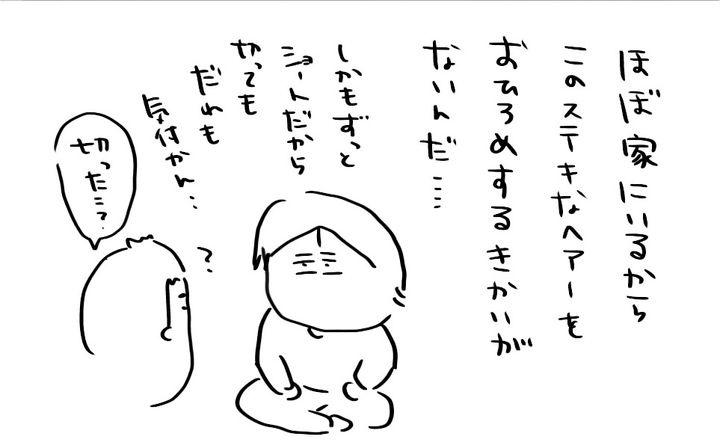 ほぼ家にいるから
このステキなヘアーを
おひろめするきかいが
ないんだ…
しかもずっと
ショートだから
切っても
だれも
気付かん…
切った…?
?